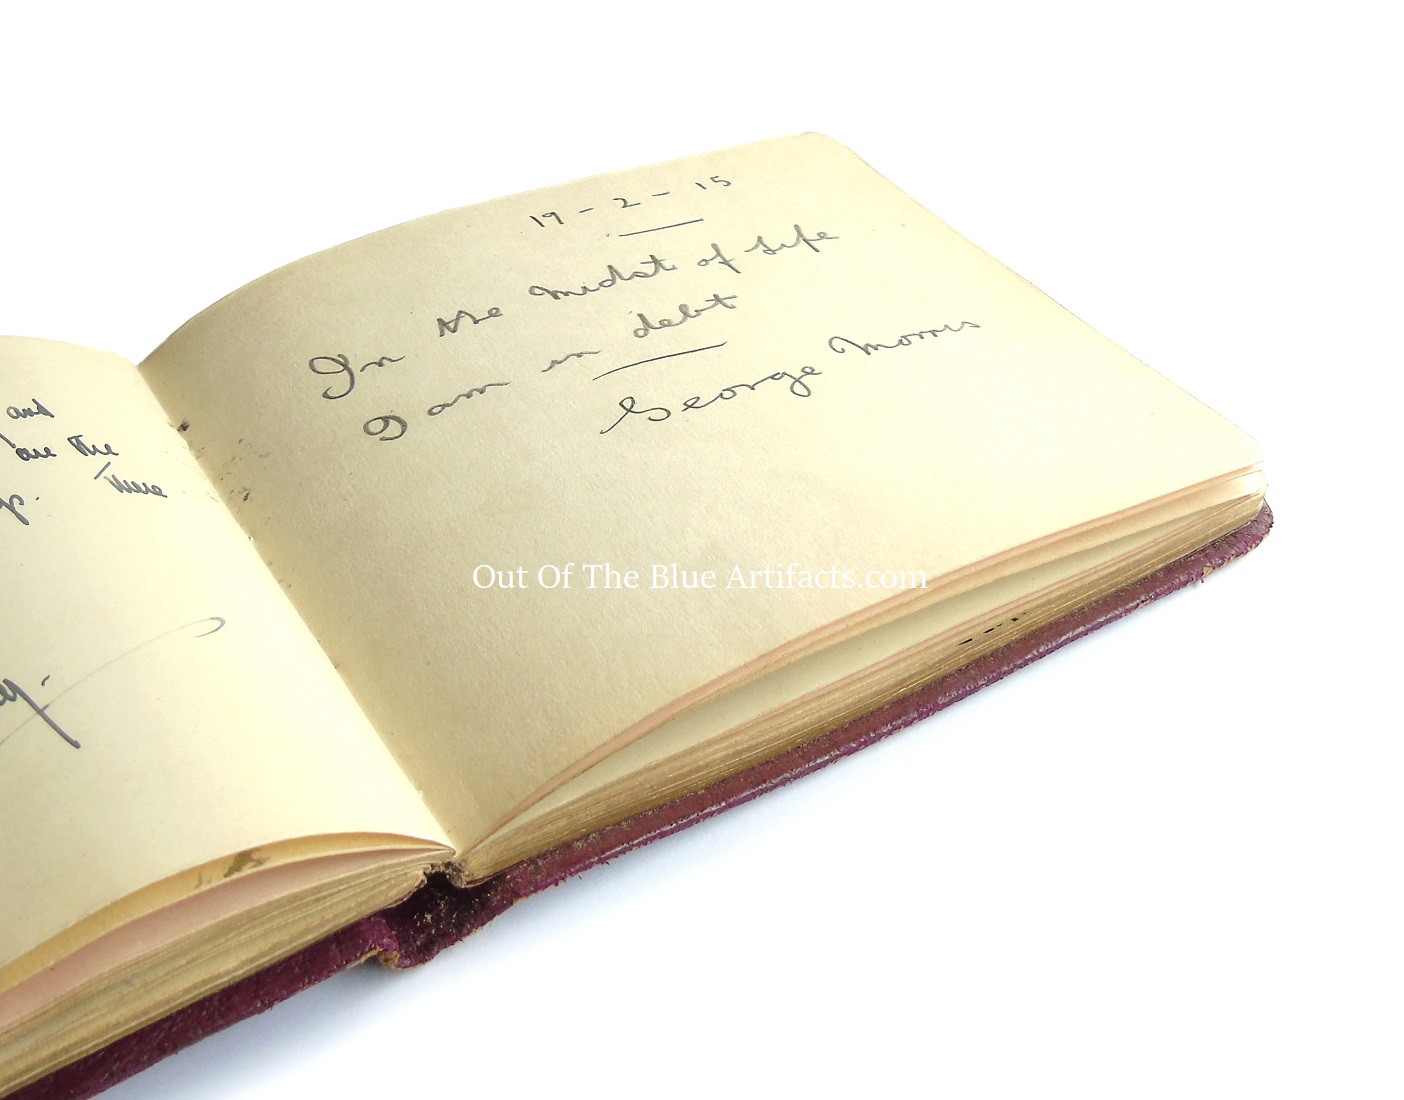 and
are the
There
19 - 2 - 15
In the Midst of Life
I am in debt
George Morris
Out Of The Blue Artifacts.com